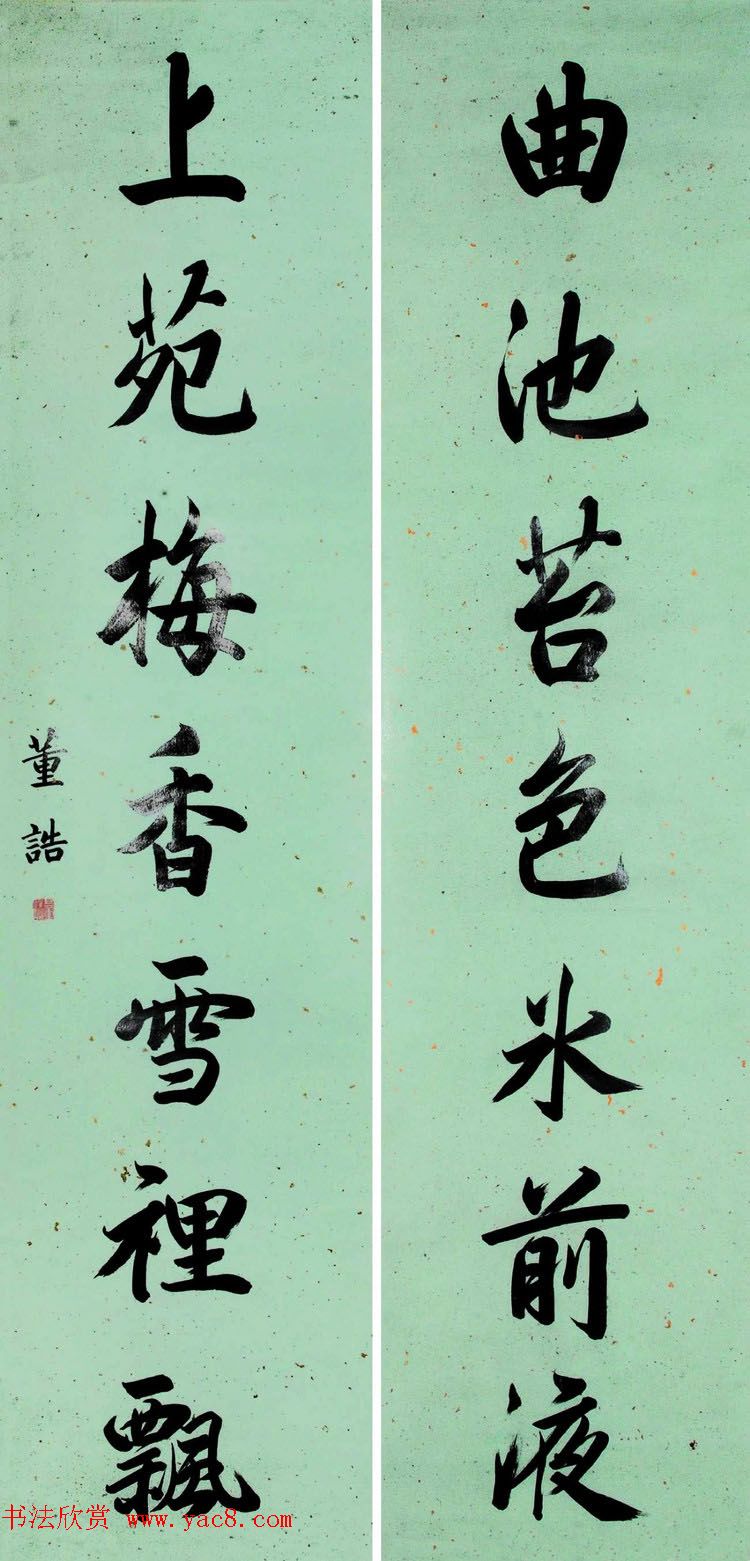 曲池苔色氷前液
上苑梅香雪裡飄
董誥
书法欣赏 www.yac8.com